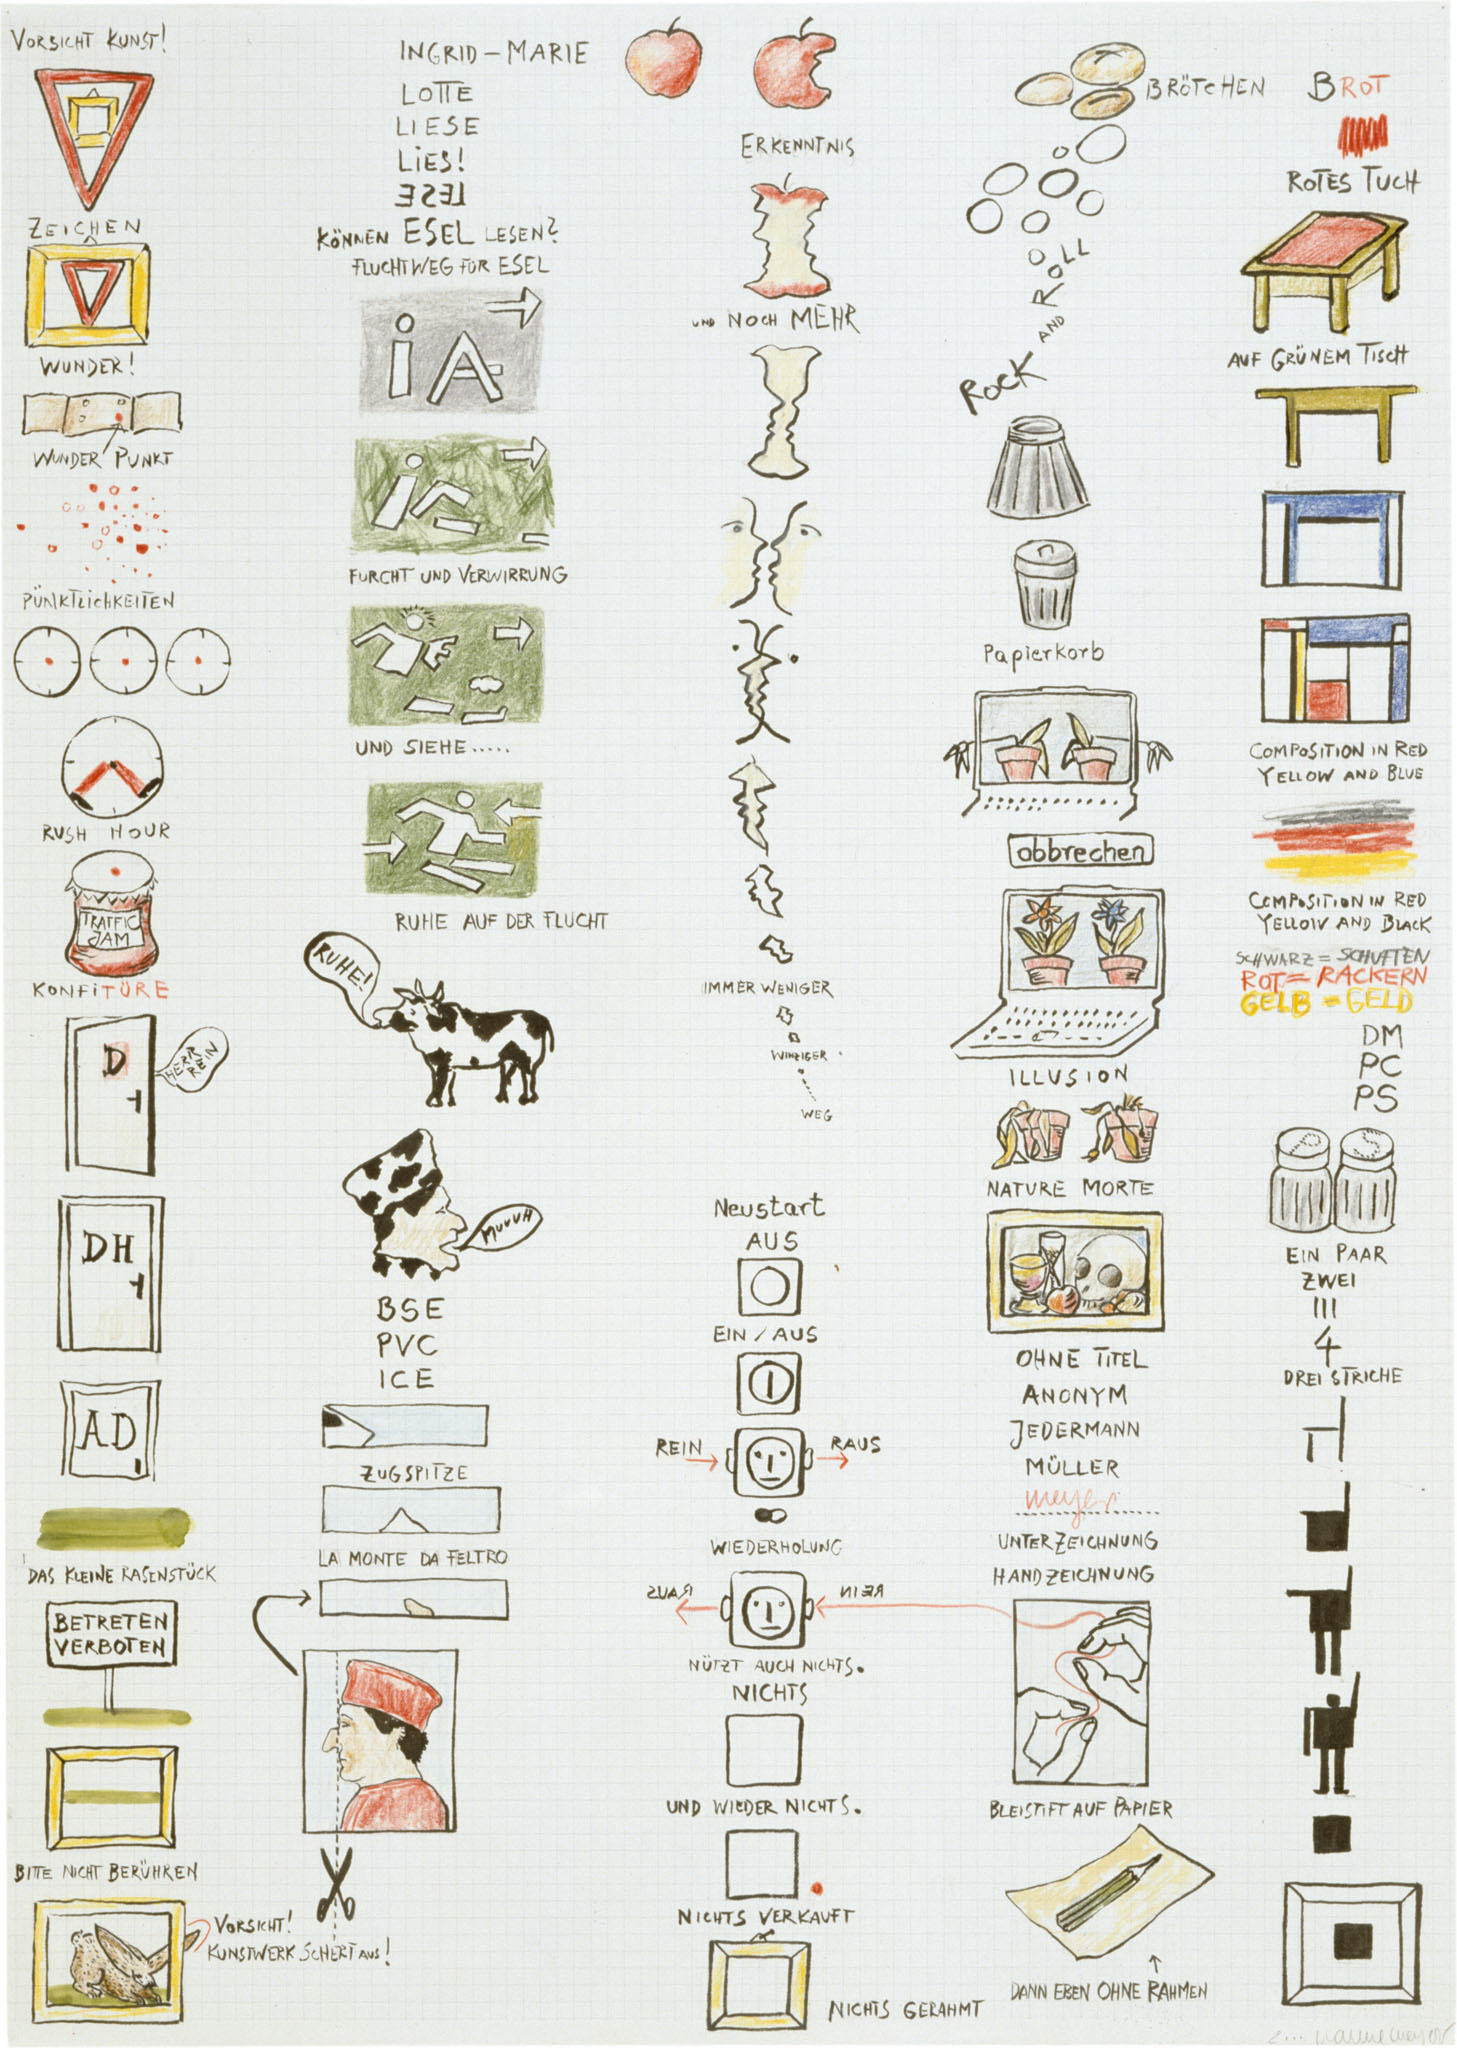 VORSICHT KUNST!
ZEICHEN
WUNDER!
WUNDER PUNKT
PÜNKTLICHKEITEN
RUSH HOUR
TRAFFIC
JAM
KONFITÜRE
D
HERR
REIN
DH
AD
DAS KLEINE RASENSTÜCK
BETRETEN
VERBOTEN
BITTE NICHT BERÜHREN
VORSICHT!
KUNSTWERK SCHERT AUS!
INGRID-MARIE
LOTTE
LIESE
LIES!
ESEL
KÖNNEN ESEL LESEN?
FLUCHTWEG FÜR ESEL
iA
FURCHT UND VERWIRRUNG
UND SIEHE.....
RUHE AUF DER FLUCHT
RUHE!
MUUUH
BSE
PVC
ICE
ZUGSPITZE
LA MONTE DA FELTRO
ERKENNTNIS
UND NOCH MEHR
IMMER WENIGER
WINZIGER
WEG
Neustart
AUS
EIN/AUS
REIN
RAUS
WIEDERHOLUNG
RAUS
REIN
NÜTZT AUCH NICHTS.
NICHTS
UND WIEDER NICHTS.
NICHTS VERKAUFT
NICHTS GERAHMT
BRÖTCHEN
ROCK AND ROLL
Papierkorb
abbrechen
ILLUSION
NATURE MORTE
OHNE TITEL
ANONYM
JEDERMANN
MÜLLER
meyer
UNTERZEICHNUNG
HANDZEICHNUNG
BLEISTIFT AUF PAPIER
DANN EBEN OHNE RAHMEN
BROT
ROTES TUCH
AUF GRÜNEM TISCH
COMPOSITION IN RED
YELLOW AND BLUE
COMPOSITION IN RED
YELLOW AND BLACK
SCHWARZ = SCHUFTEN
ROT = RACKERN
GELB = GELD
DM
PC
PS
P S
EIN PAAR
ZWEI
III
4
DREI STRICHE